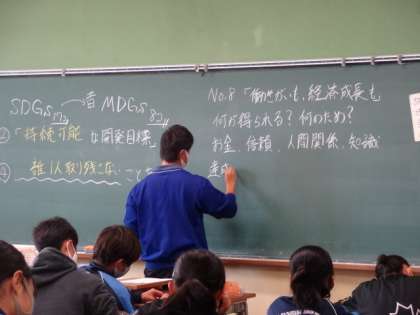 SDGs ← 昔 MDGs
③「持続可能」な開発目標
④ 誰1人取り残さないこと
No.8「働きがいも、経済成長も
何が得られる？何のため？
お金、信頼、人間関係、知識
達成